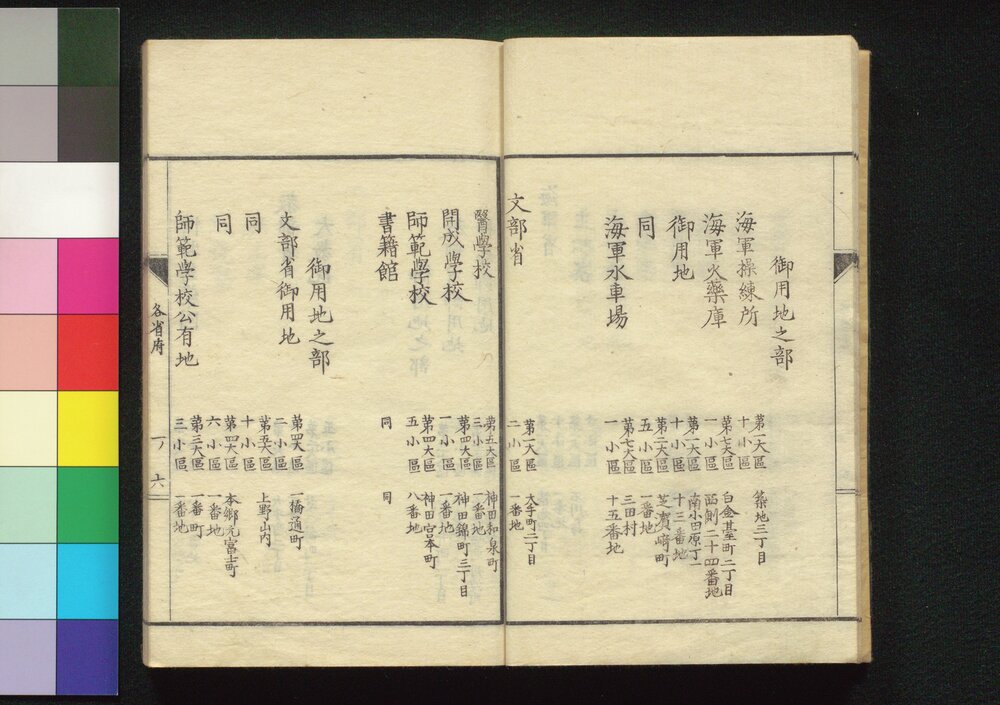 御用地之部
海軍操練所 第一大區 十小區 築地三丁目
海軍火藥庫 第七大區 一小區 白金臺町二丁目 西側二十四番地
御用地 第一大區 十小區 南小田原丁一 十三番地
同 第二大區 五小區 芝濱崎町 一番地
海軍水車場 第七大區 一小區 三田村 十五番地
文部省 第一大區 二小區 大手町二丁目 一番地
醫學校 第五大區 三小區 神田和泉町 一番地
開成學校 第四大區 一小區 神田錦町三丁目 一番地
師範學校 第四大區 五小區 神田宮本町 八番地
書籍館 同 同
御用地之部
文部省御用地 第四大區 二小區 一橋通町
同 第五大區 十小區 上野山内
同 第四大區 六小區 本鄉元富士町 一番地
師範學校公有地 第三大區 三小區 一番町 一番地
各省府 一 六